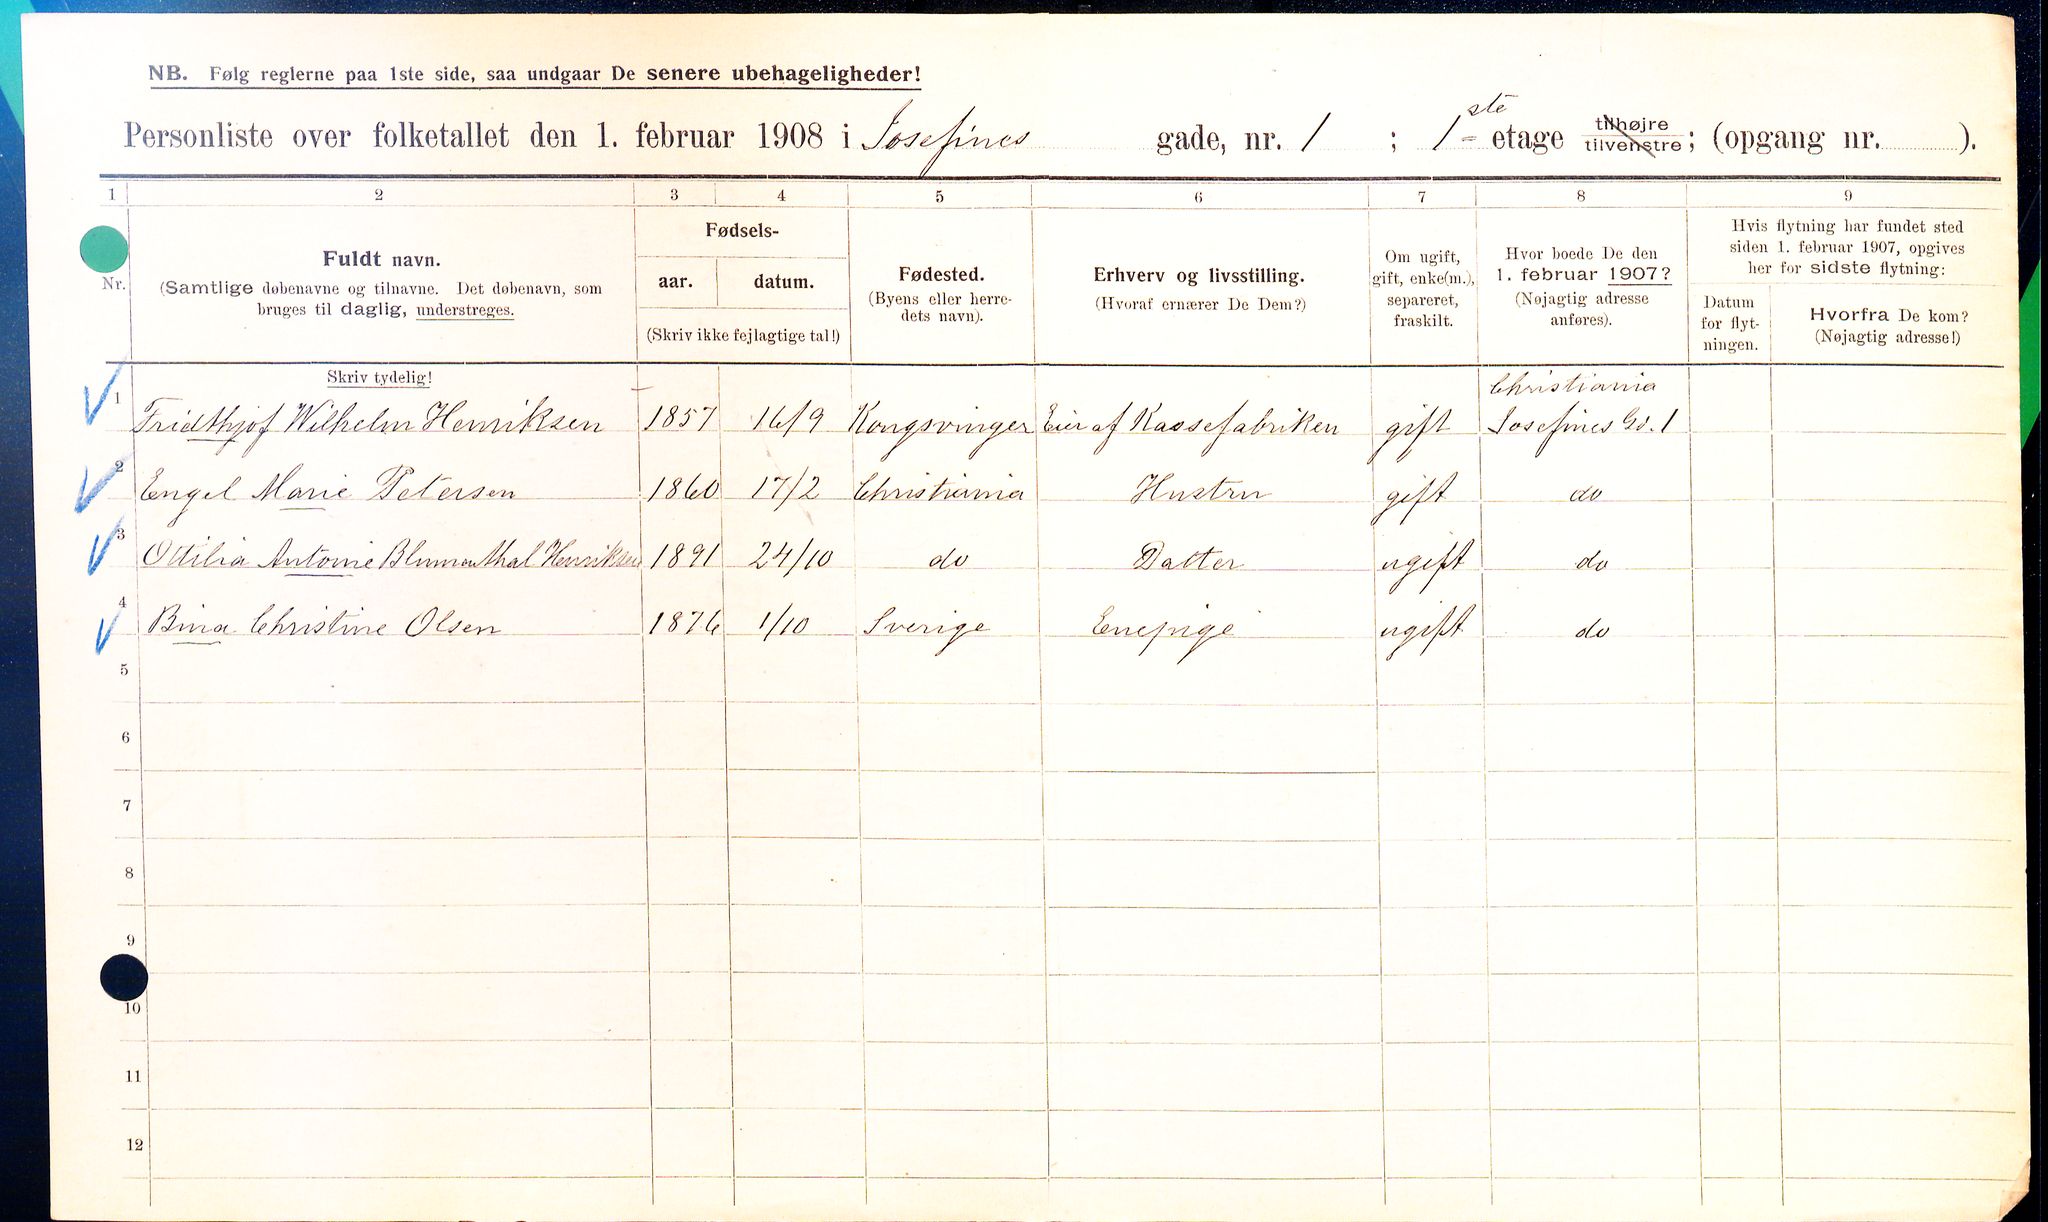 NB. Følg reglerne paa 1ste side, saa undgaar De senere ubehageligheder!
Personliste over folketallet den 1. februar 1908 i Josefines gade, nr. 1 ; 1ste etage tilhøjre tilvenstre; (opgang nr. ).
1 2 3 4 5 6 7 8 9
Nr.
Fuldt navn.
(Samtlige døbenavne og tilnavne. Det døbenavn, som
bruges til daglig, understreges.
Fødsels-
aar. datum.
(Skriv ikke fejlagtige tal!)
Fødested.
(Byens eller herre-
dets navn).
Erhverv og livsstilling.
(Hvoraf ernærer De Dem?)
Om ugift,
gift, enke(m.),
separeret,
fraskilt.
Hvor boede De den
1. februar 1907?
(Nøjagtig adresse
anføres).
Hvis flytning har fundet sted
siden 1. februar 1907, opgives
her for sidste flytning:
Datum
for flyt-
ningen.
Hvorfra De kom?
(Nøjagtig adresse!)
Skriv tydelig!
Christiania
1 Fridthjof Wilhelm Henriksen 1857 16/9 Kongsvinger Eier af Kassefabriken gift Josefines Gd. 1
2 Engel Marie Petersen 1860 17/2 Christiania Hustru gift do
3 Ottilia Antonie Blumenthal Henriksen 1891 24/10 do Datter ugift do
4 Bina Christine Olsen 1876 1/10 Sverige Enepige ugift do
5
6
7
8
9
10
11
12